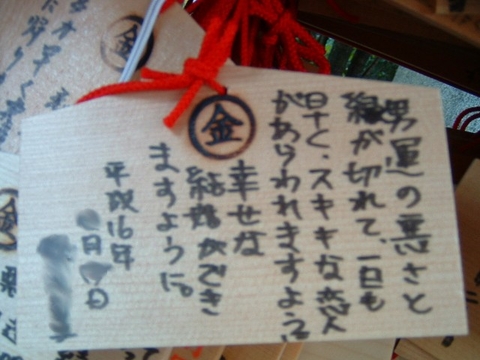 男運の悪さと
縁が切れて、一日も
早く、スキキな恋人
があらわれますよう
幸せな
結婚ができ
ますように。
平成16年
月 日
金
金
金